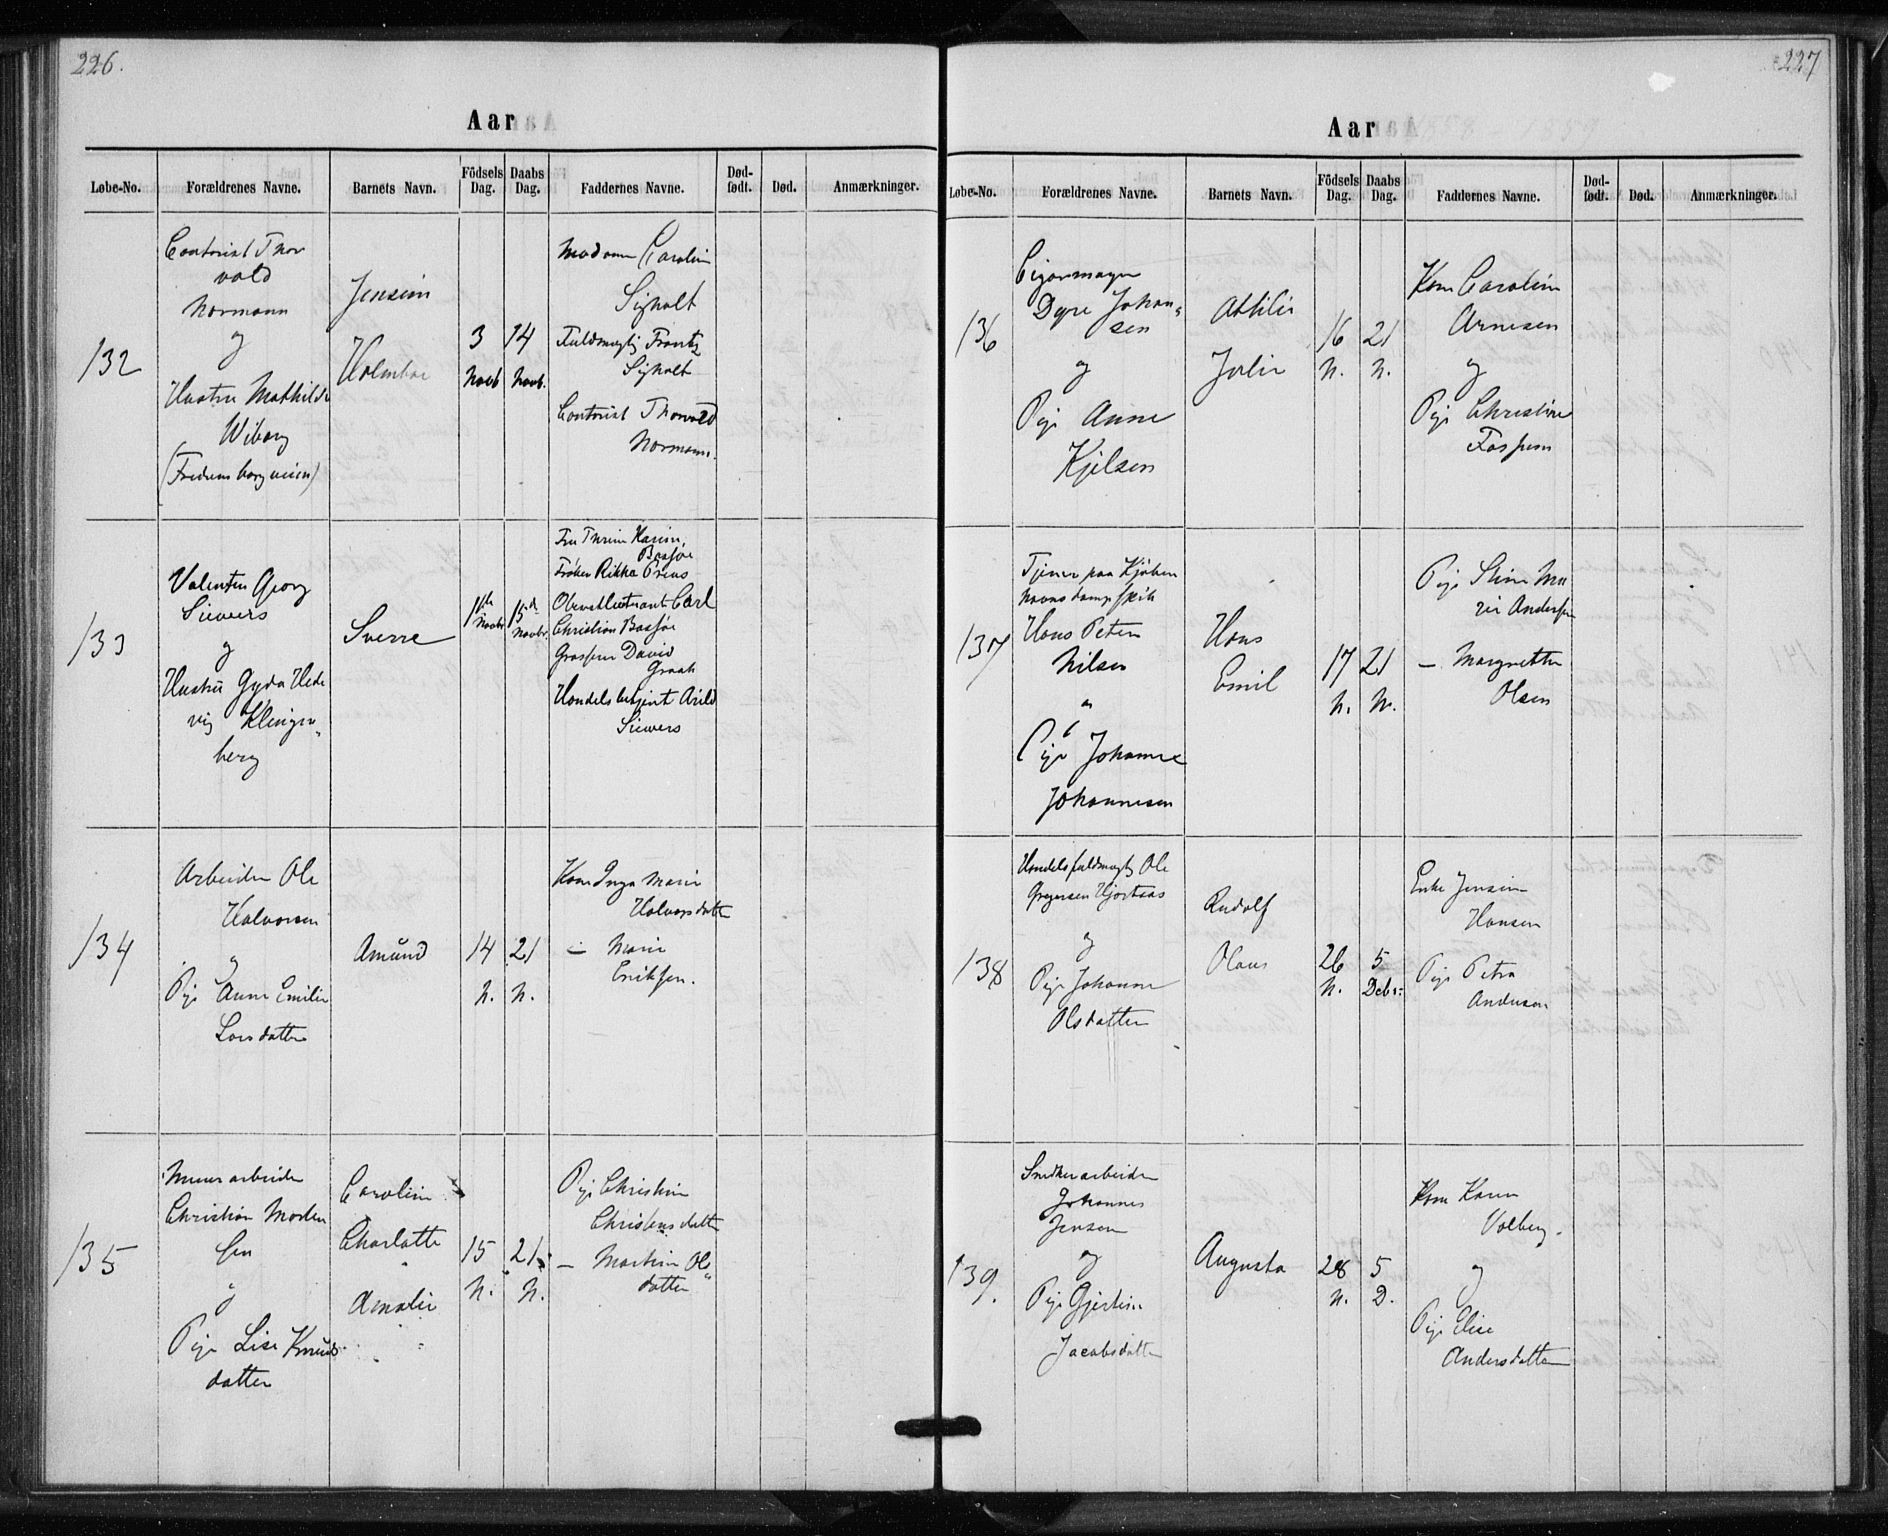 226.
Aar
Løbe-No. Forældrenes Navne. Barnets Navn. Fødsels Dag. Daabs Dag. Faddernes Navne. Død-født. Død. Anmærkninger.
132
Contorist Thor
vald
Normann
og
Hustru Mathilde
Wiborg
(Fredensborgveien)
Jensine
Holmboe
3
Novb
14
Novb.
Madame Caroline
Sigholt
Fuldmægtig Frantz
Sigholt
Contorist Thorvald
Normann.
133
Valentin Georg
Siewers
og
Hustru Gyda Hede
vig Klingen
berg
Sverre
11te
Novbr
15de
Novbr.
Fru Thrine Karine
Bassøe
Frøken Rikka Preus
Oberstlieutnant Carl
Christian Bassøe
Grosserer David
Graah
Handelsbetjent Arild
Siewers
134
Arbeider Ole
Halvorsen
og
Pige Anne Emilie
Larsdatter
Amund
14
N.
21
N.
Kone Inga Marie
Halvorsdatter
— Marie
Eriksen.
135
Murerarbeider
Christian Morten
sen
og
Pige Lise Knuds
datter
Caroline
Charlotte
Amalie
15
N.
21
N.
Pige Christine
Christensdatter
— Martine Ols
datter
227
Aar
Løbe-No. Forældrenes Navne. Barnets Navn. Fødsels Dag. Daabs Dag. Faddernes Navne. Død-født. Død. Anmærkninger.
136
Cigarmager
Dyre Johan-
sen
og
Pige Anne
Kjelsen
Attilie
Julie
16
N.
21
N.
Kone Caroline
Arnesen
og
Pige Christine
137
Tjener paa Kjøben
havns dampskib
Hans Peter
Nilsen
og
Pige Johanne
Johannesen
Hans
Emil
17
N.
21
N.
Pige Stine Ma
rie Andersen
— Margrethe
Olsen
138
Handelsfuldmægtig Ole
Gregersen Hjortaas
og
Pige Johanne
Olsdatter
Rudolf
Olaus
26
N.
5
Debr.
Enke Jensine
Hansen
Pige Petra
Andersen
139.
Snedkerarbeider
Johannes
Jensen
og
Pige Gjertine
Jacobsdatter
Augusta
28
N.
5
D.
Kone Karen
Volberg.
og
Pige Elise
Andersdatter